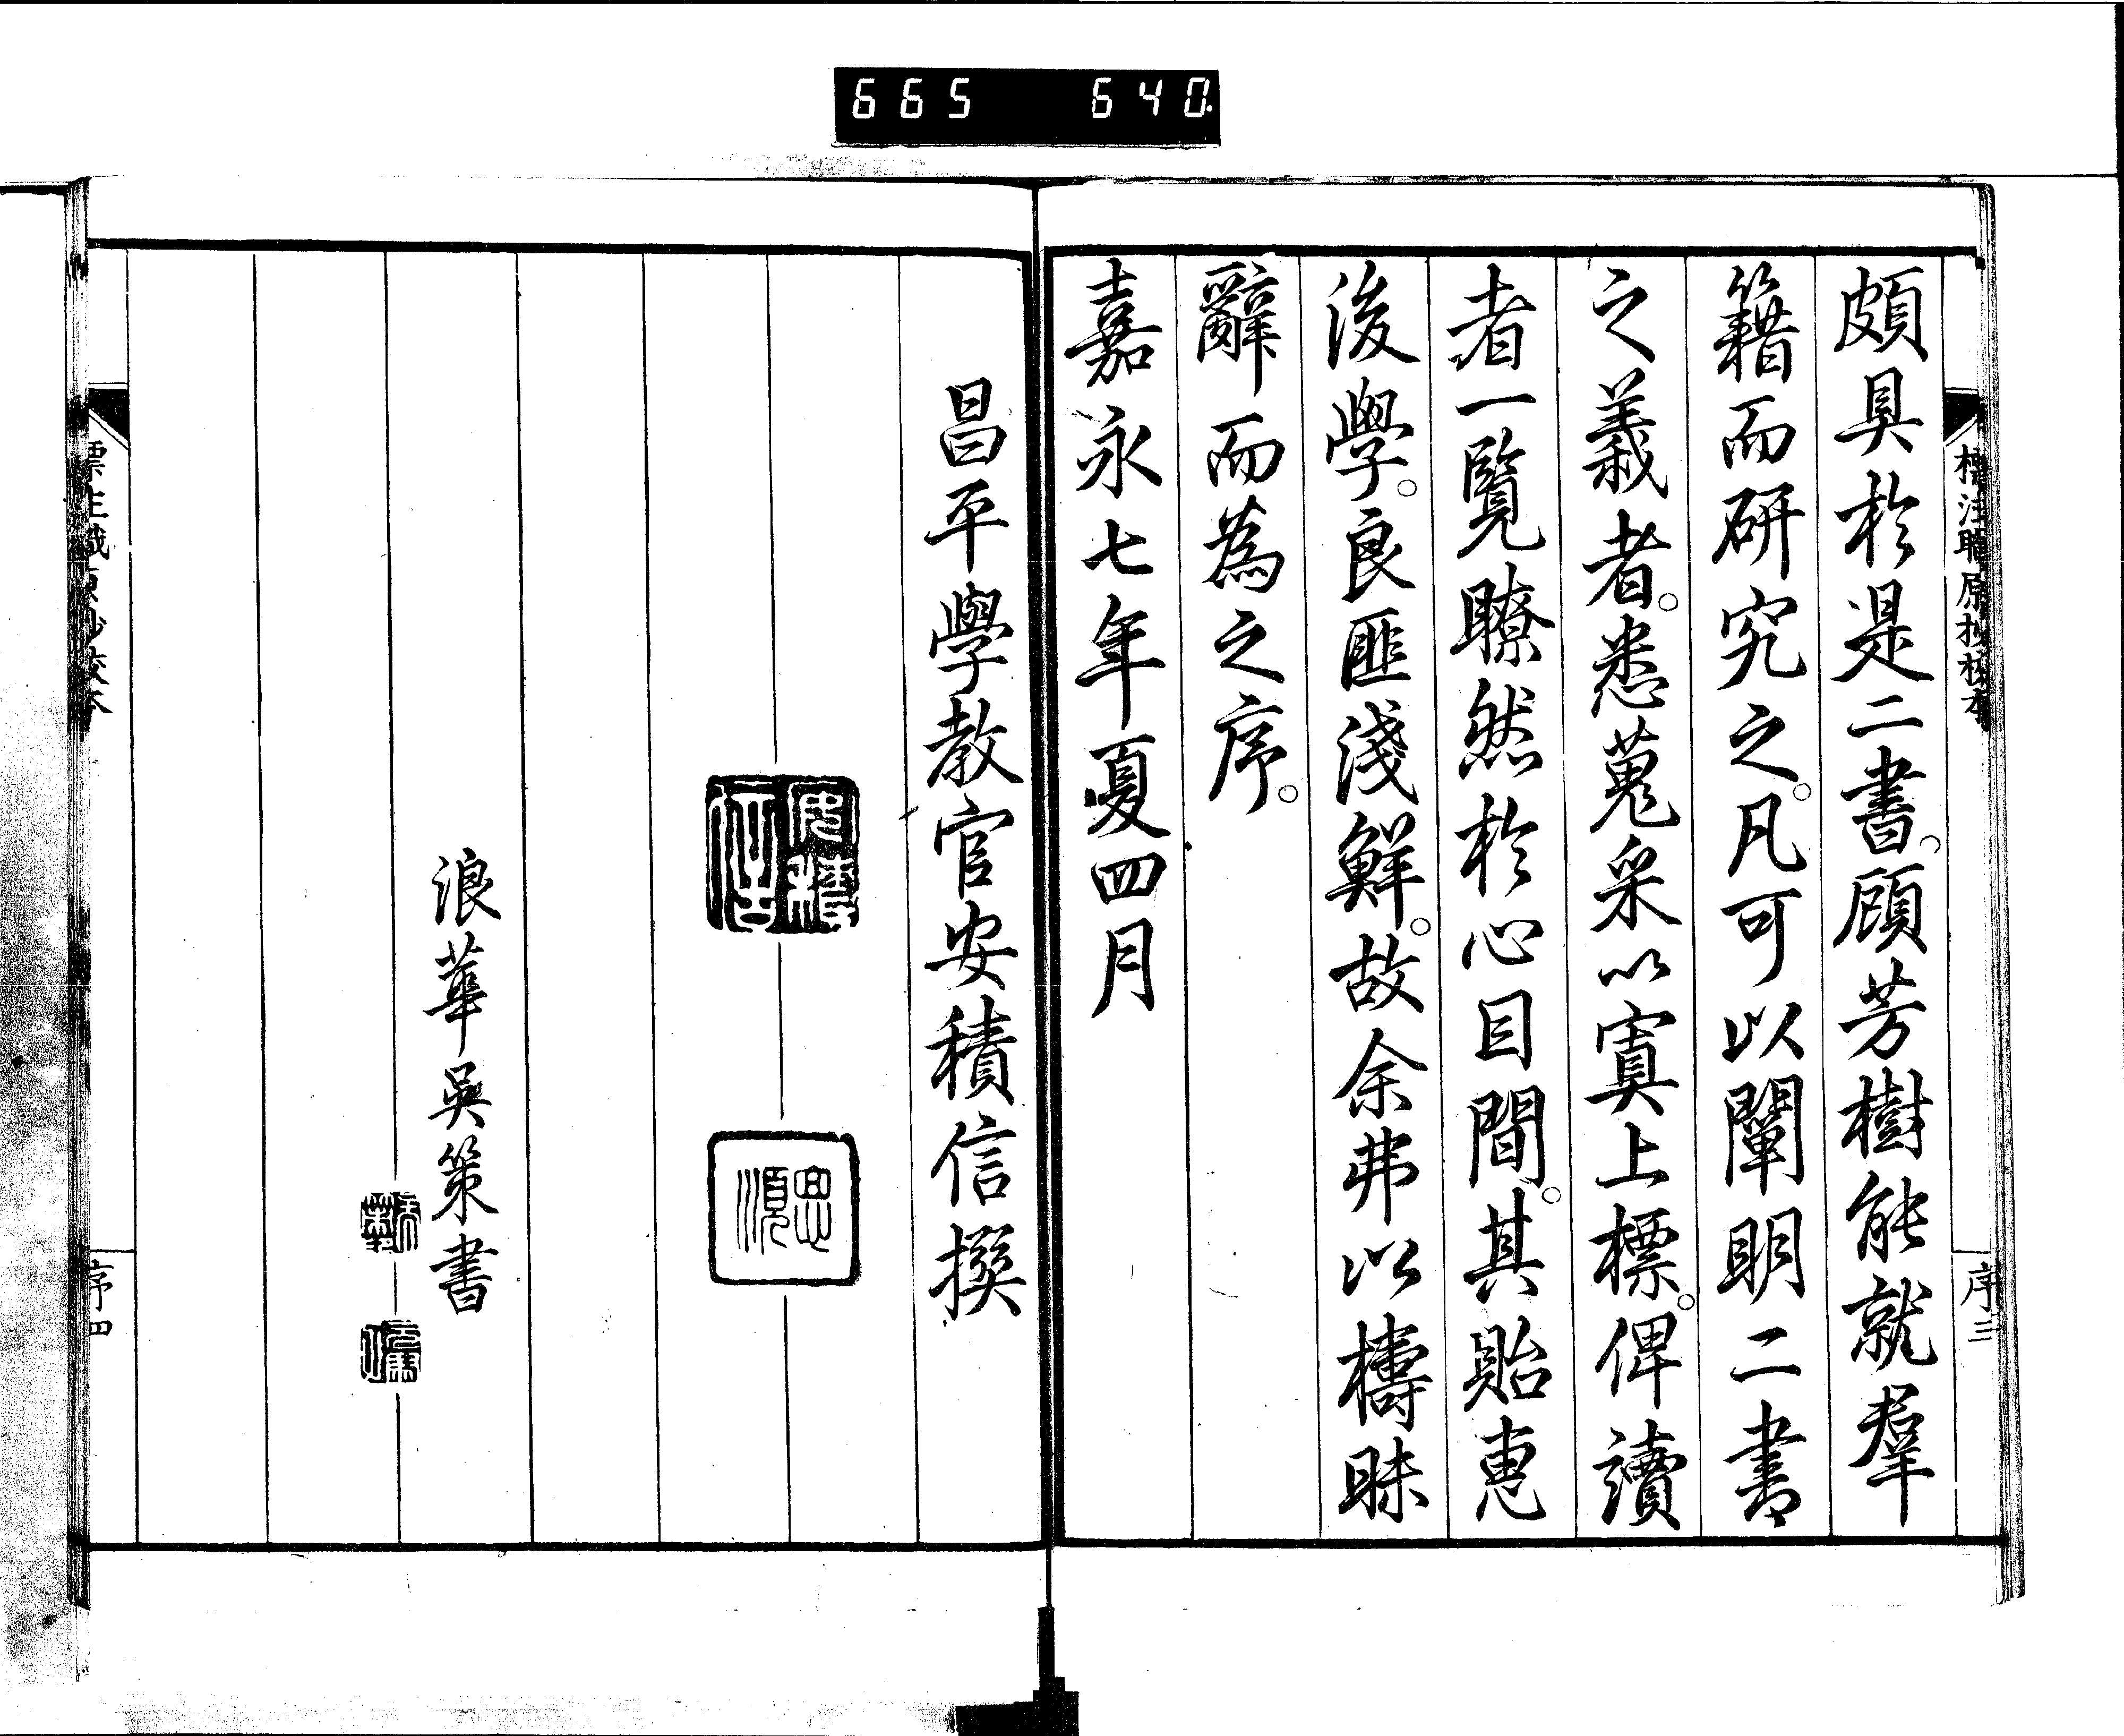 665 640.
標注職原抄校本
序三
頗具於是二書。顧芳樹能就群
籍而研究之。凡可以闡明二書
之義者。悉蒐采以寘上標。俾讀
者一覧瞭然於心目間。其貽恵
後學。良匪淺鮮。故余弗以檮昧
辭而為之序。
嘉永七年夏四月
昌平學教官安積信撰
安積信
思順
浪華吳策書
標注職原抄校本
序四